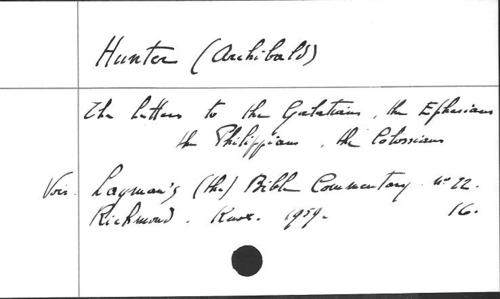 Hunter (Archibald)
The letters to the Galatians, the Ephesians
the Philippians, the Colossians
Voir. Layman's (the) Bible Commentary. n° 22.
Richmond. Knox. 1959. 16.